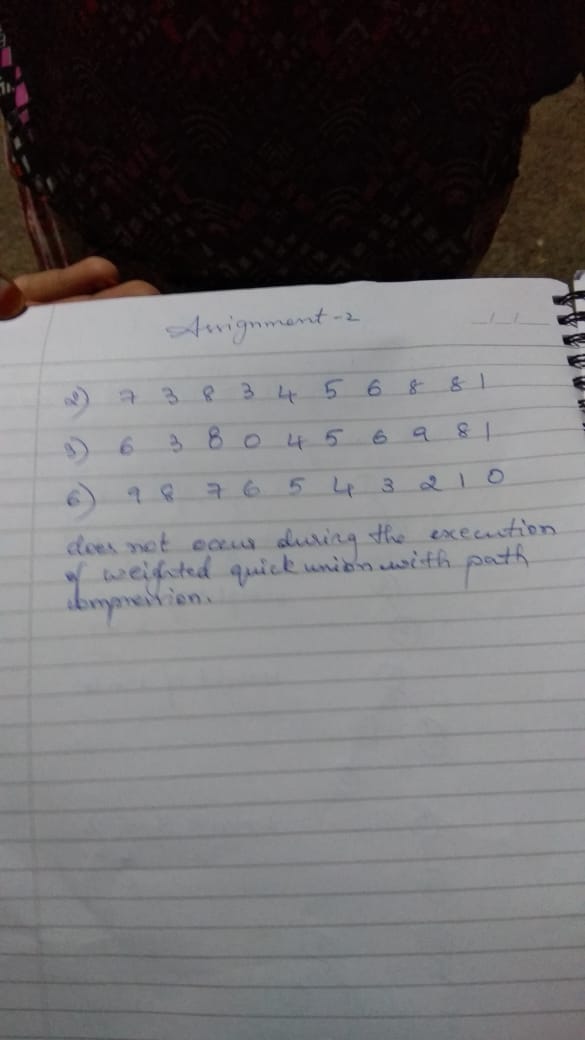 Assignment-2
2) 7 3 8 3 4 5 6 8 8 1
3) 6 3 8 0 4 5 6 9 8 1
6) 9 8 7 6 5 4 3 2 1 0
does not occur during the execution
of weighted quick union with path
compression.